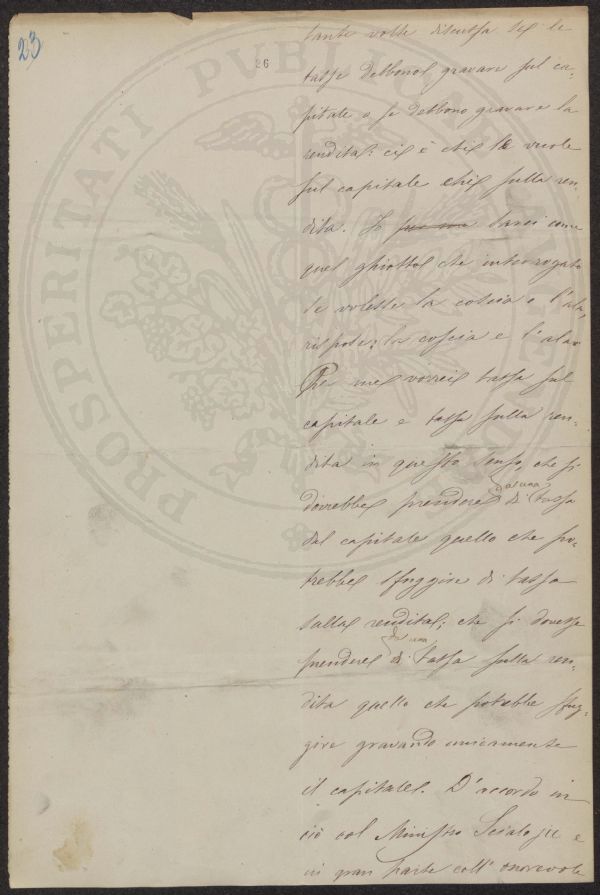 23
26
tante volte discussa se le
tasse debbono gravare sul ca-
pitale o se debbono gravare la
rendita: ci è chi le vuole
sul capitale chi sulla ren-
dita. Io farei come
quel ghiotto che interrogato
se volesse la coscia o l'ala,
rispose: la coscia e l'ala.
Per me vorrei tassa sul
capitale e tassa sulla ren-
dita in questo senso, che si
dovrebbe prendere di tassa
da una
dal capitale quello che po-
trebbe sfuggire di tassa
sulla rendita; che si dovesse
prendere di tassa sulla ren-
da una
dita quello che potrebbe sfug-
gire gravando unicamente
il capitale. D'accordo in
ciò col Ministro Scialoja e
in gran parte coll'onorevole
PROSPERITATI PVBLICAE